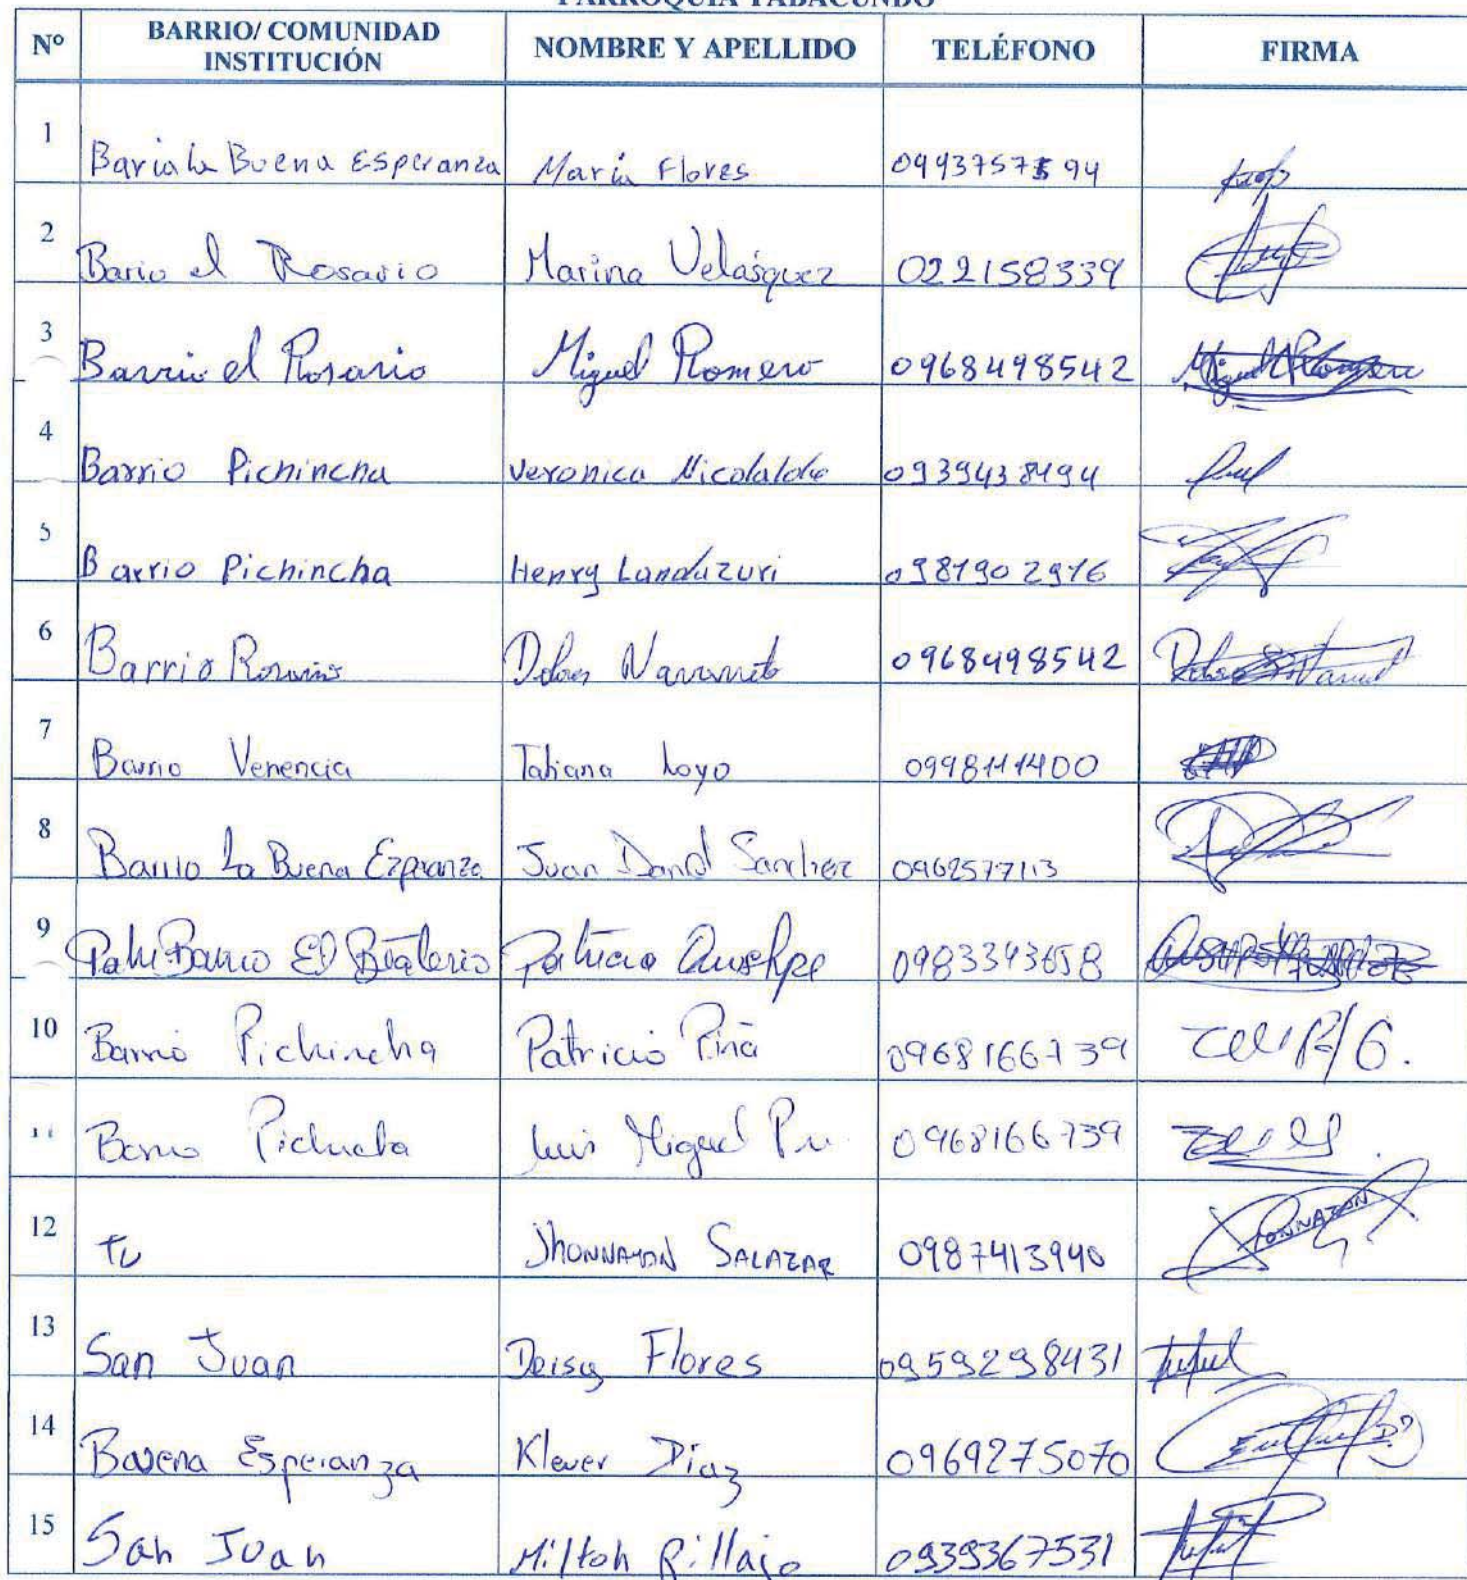 PARROQUIA TABACUNDO
N° BARRIO/ COMUNIDAD INSTITUCIÓN NOMBRE Y APELLIDO TELÉFONO FIRMA
1 Bario la Buena Esperanza María Flores 0993757594
2 Bario el Rosario Marina Velasquez 022158339
3 Barrio el Rosario Miguel Romero 0968498542 Miguel Romero
4 Barrio Pichincha Veronica Nicolalde 0939438494
5 Barrio Pichincha Henry Landazuri 0981902976
6 Barrio Rosario Dolores Navarrete 0968498542
7 Barrio Venencia Tatiana Loyo 0998111400
8 Barrio La Buena Ezperanza Juan David Sanchez 0962577113
9 Barrio El Patricio 0983343658
10 Barrio Pichincha Patricio Piña 0968166739
11 Barrio Luis Miguel 0968166739
12 TU Jhonnatan SALAZAR 0987413940 JHONNATAN
13 San Juan Deisy Flores 0959298431
14 Bauena Esperanza Klever Díaz 0969275070
15 San Juan Milton Pillajo 0939367531